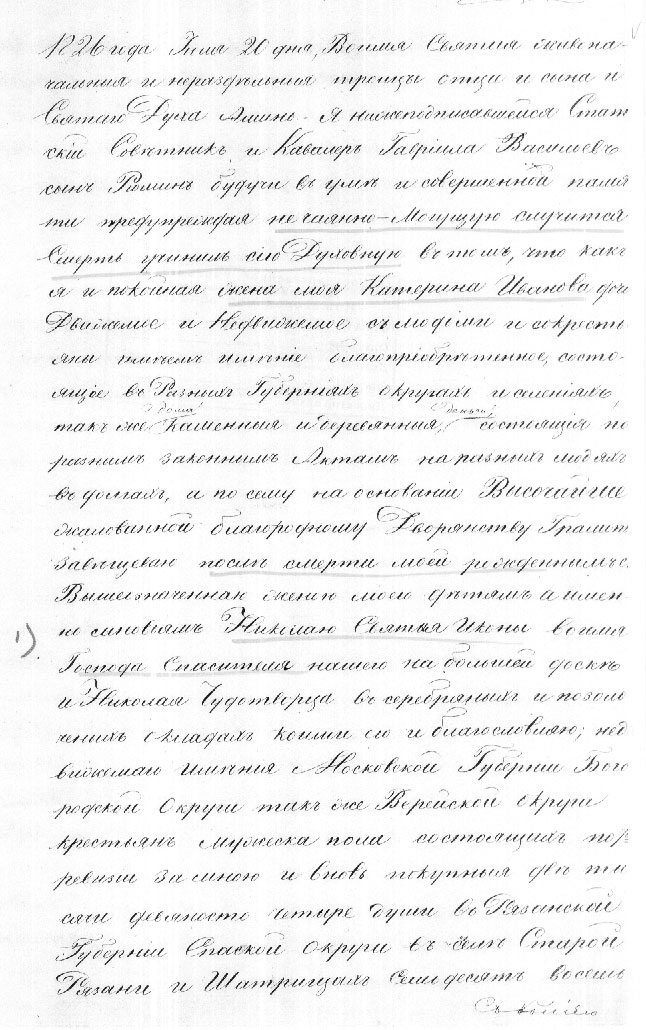 1826 года Июля 20 дня, Во имя Святыя живона-
чальныя и нераздѣльныя троицы отца и сына и
Святаго Духа Аминь - Я нижеподписавшейся Стат
скій Совѣтникъ и Кавалеръ Гавріила Васильевъ
сынъ Рюминъ будучи въ умѣ и совершенной памя
ти предупреждая нечаянно-Могущую случится
Смерть учинилъ сію Духовную въ томъ, что какъ
я и покойная жена моя Катерина Иванова дочь
Движемое и Недвижемое съ людьми и со кресть
яны имѣемъ имѣніе благопріобрѣтенное, состо-
ящое въ Разныхъ Губерніяхъ округахъ и селеніяхъ,
такъ же домы Каменныя и деревянныя, деньги, состоящія по
разнымъ законнымъ Актамъ на разныхъ людяхъ
въ долгахъ, и по сему на основаніи Высочайше
жалованной благородному Дворянству Грамат
Завѣщеваю послѣ смерти моей рожденнымъ с
Вышеозначенною женою моею дѣтямъ а имен
но сыновьямъ Николаю Святыя Иконы во имя
1) Господа Спасителя нашего на большей доскѣ
и Николая Чудотворца въ серебряныхъ и позоло
ченыхъ окладахъ коими его и благословляю; нед
вижемаго имѣнія Московской Губерніи Бого
родской Округи такъ же Верейской округи
крестьянъ мужеска пола состоящихъ по 7
ревизіи за мною и вновь покупныя двѣ ты
сячи девяносто четыре души во Рязанской
Губерніи Спаской Округи въ селѣ Старой
Рязани и Шатрищахъ семьдесятъ восемь
Съ